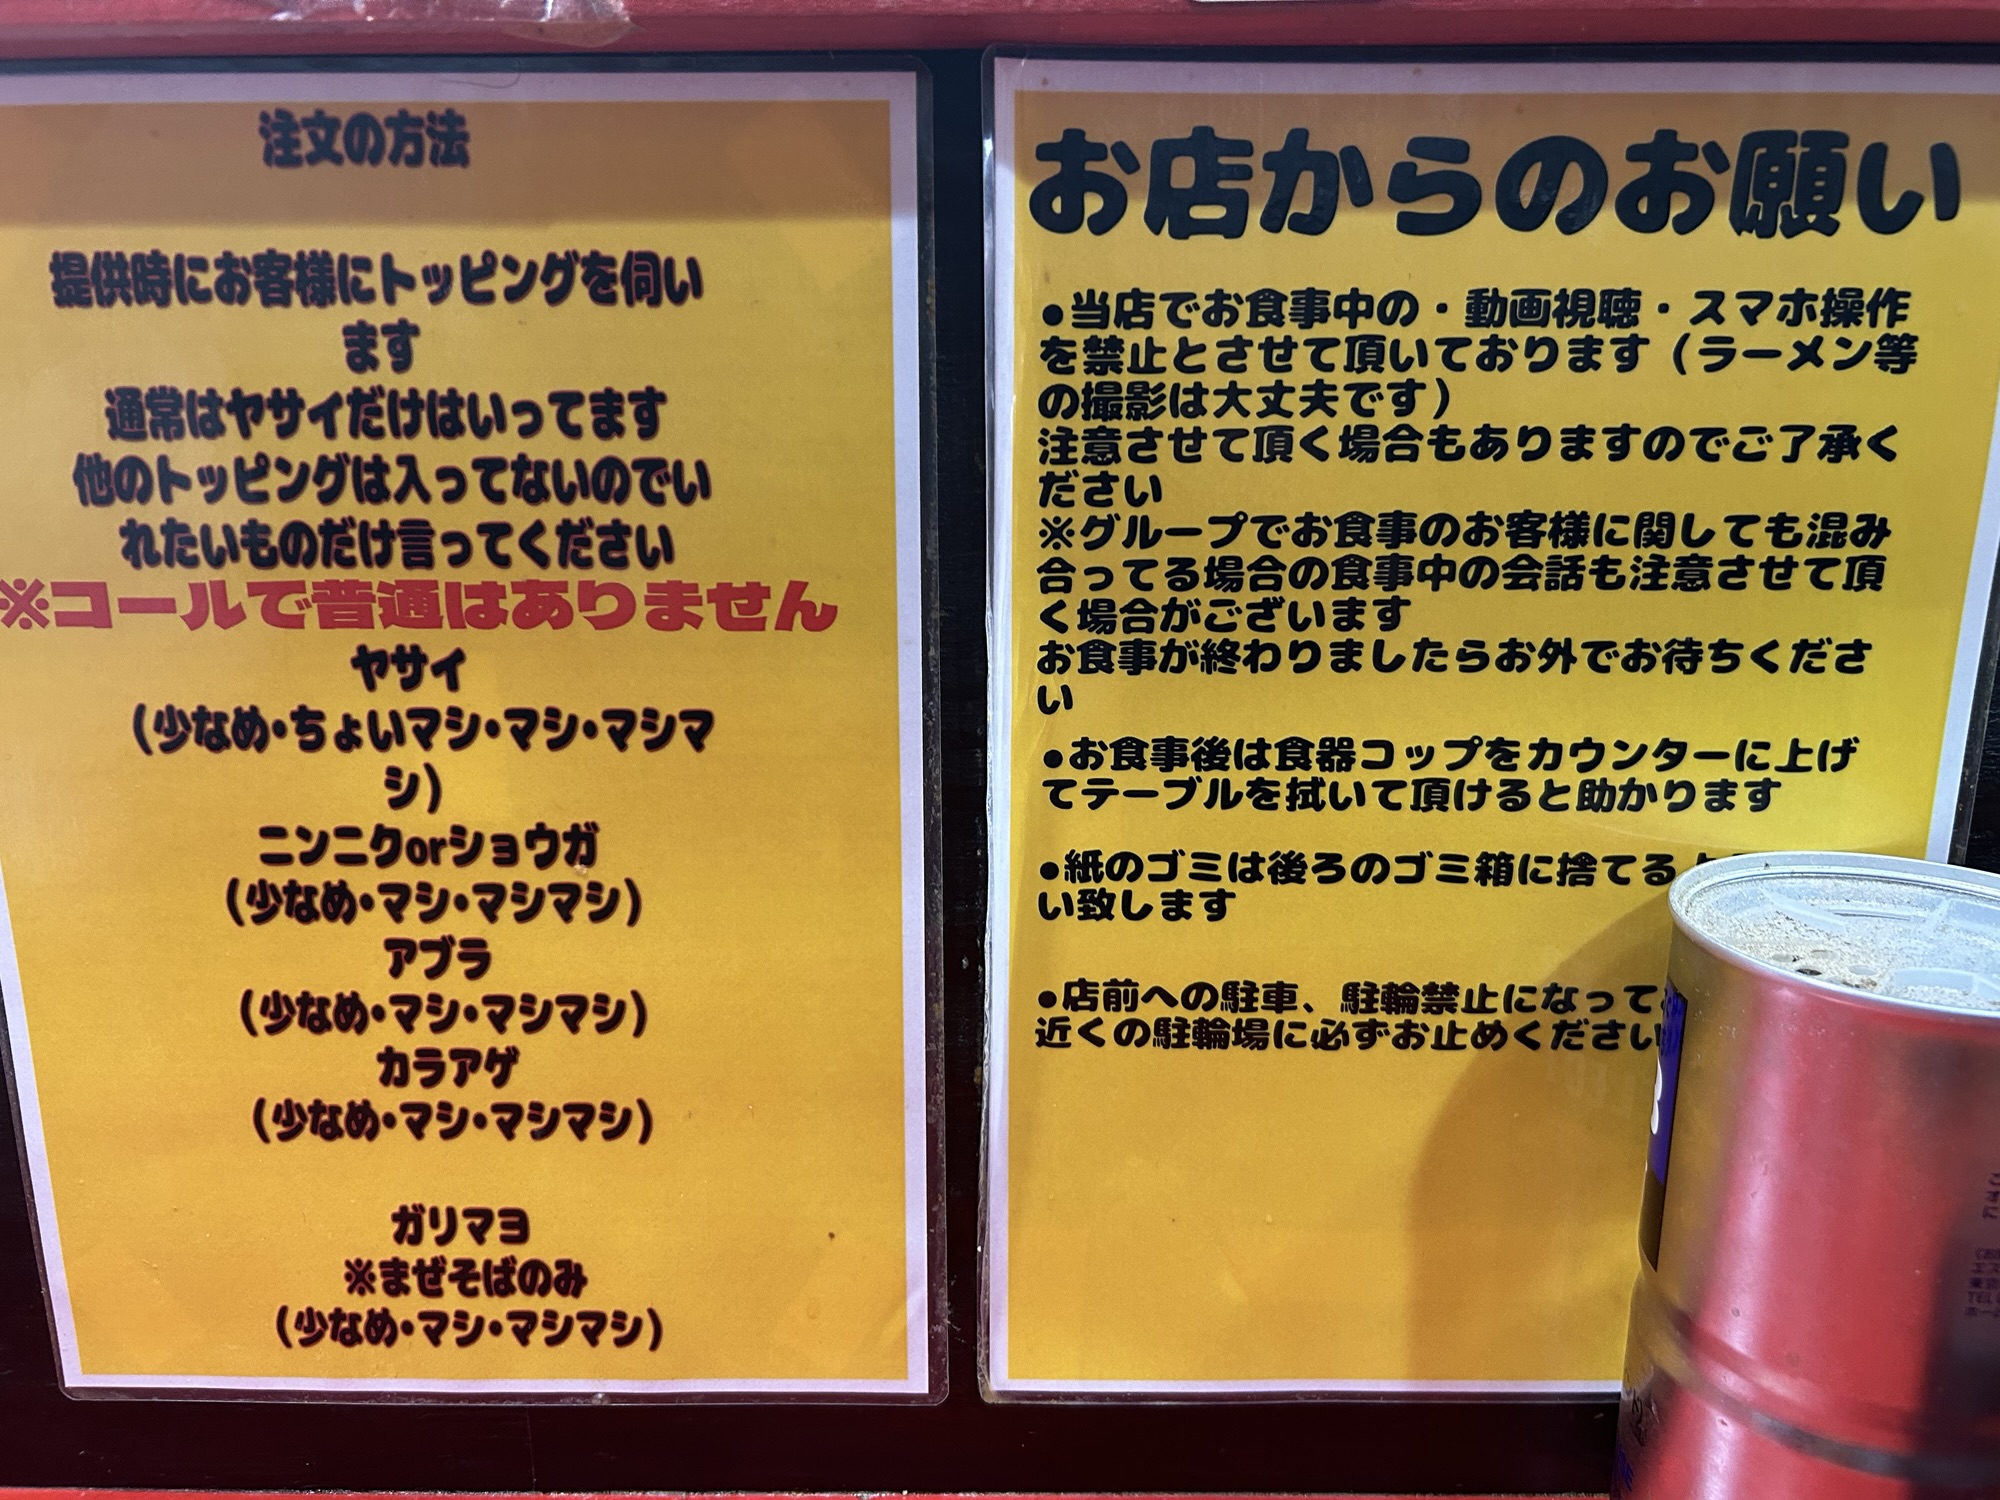 注文の方法
提供時にお客様にトッピングを伺い
ます
通常はヤサイだけはいってます
他のトッピングは入ってないのでい
れたいものだけ言ってください
※コールで普通はありません
ヤサイ
(少なめ・ちょいマシ・マシ・マシマ
シ)
ニンニクorショウガ
(少なめ・マシ・マシマシ)
アブラ
(少なめ・マシ・マシマシ)
カラアゲ
(少なめ・マシ・マシマシ)
ガリマヨ
※まぜそばのみ
(少なめ・マシ・マシマシ)
お店からのお願い
●当店でお食事中の・動画視聴・スマホ操作
を禁止とさせて頂いております（ラーメン等
の撮影は大丈夫です）
注意させて頂く場合もありますのでご了承く
ださい
※グループでお食事のお客様に関しても混み
合ってる場合の食事中の会話も注意させて頂
く場合がございます
お食事が終わりましたらお外でお待ちくださ
い
●お食事後は食器コップをカウンターに上げ
てテーブルを拭いて頂けると助かります
●紙のゴミは後ろのゴミ箱に捨てる
い致します
●店前への駐車、駐輪禁止になって
近くの駐輪場に必ずお止めください